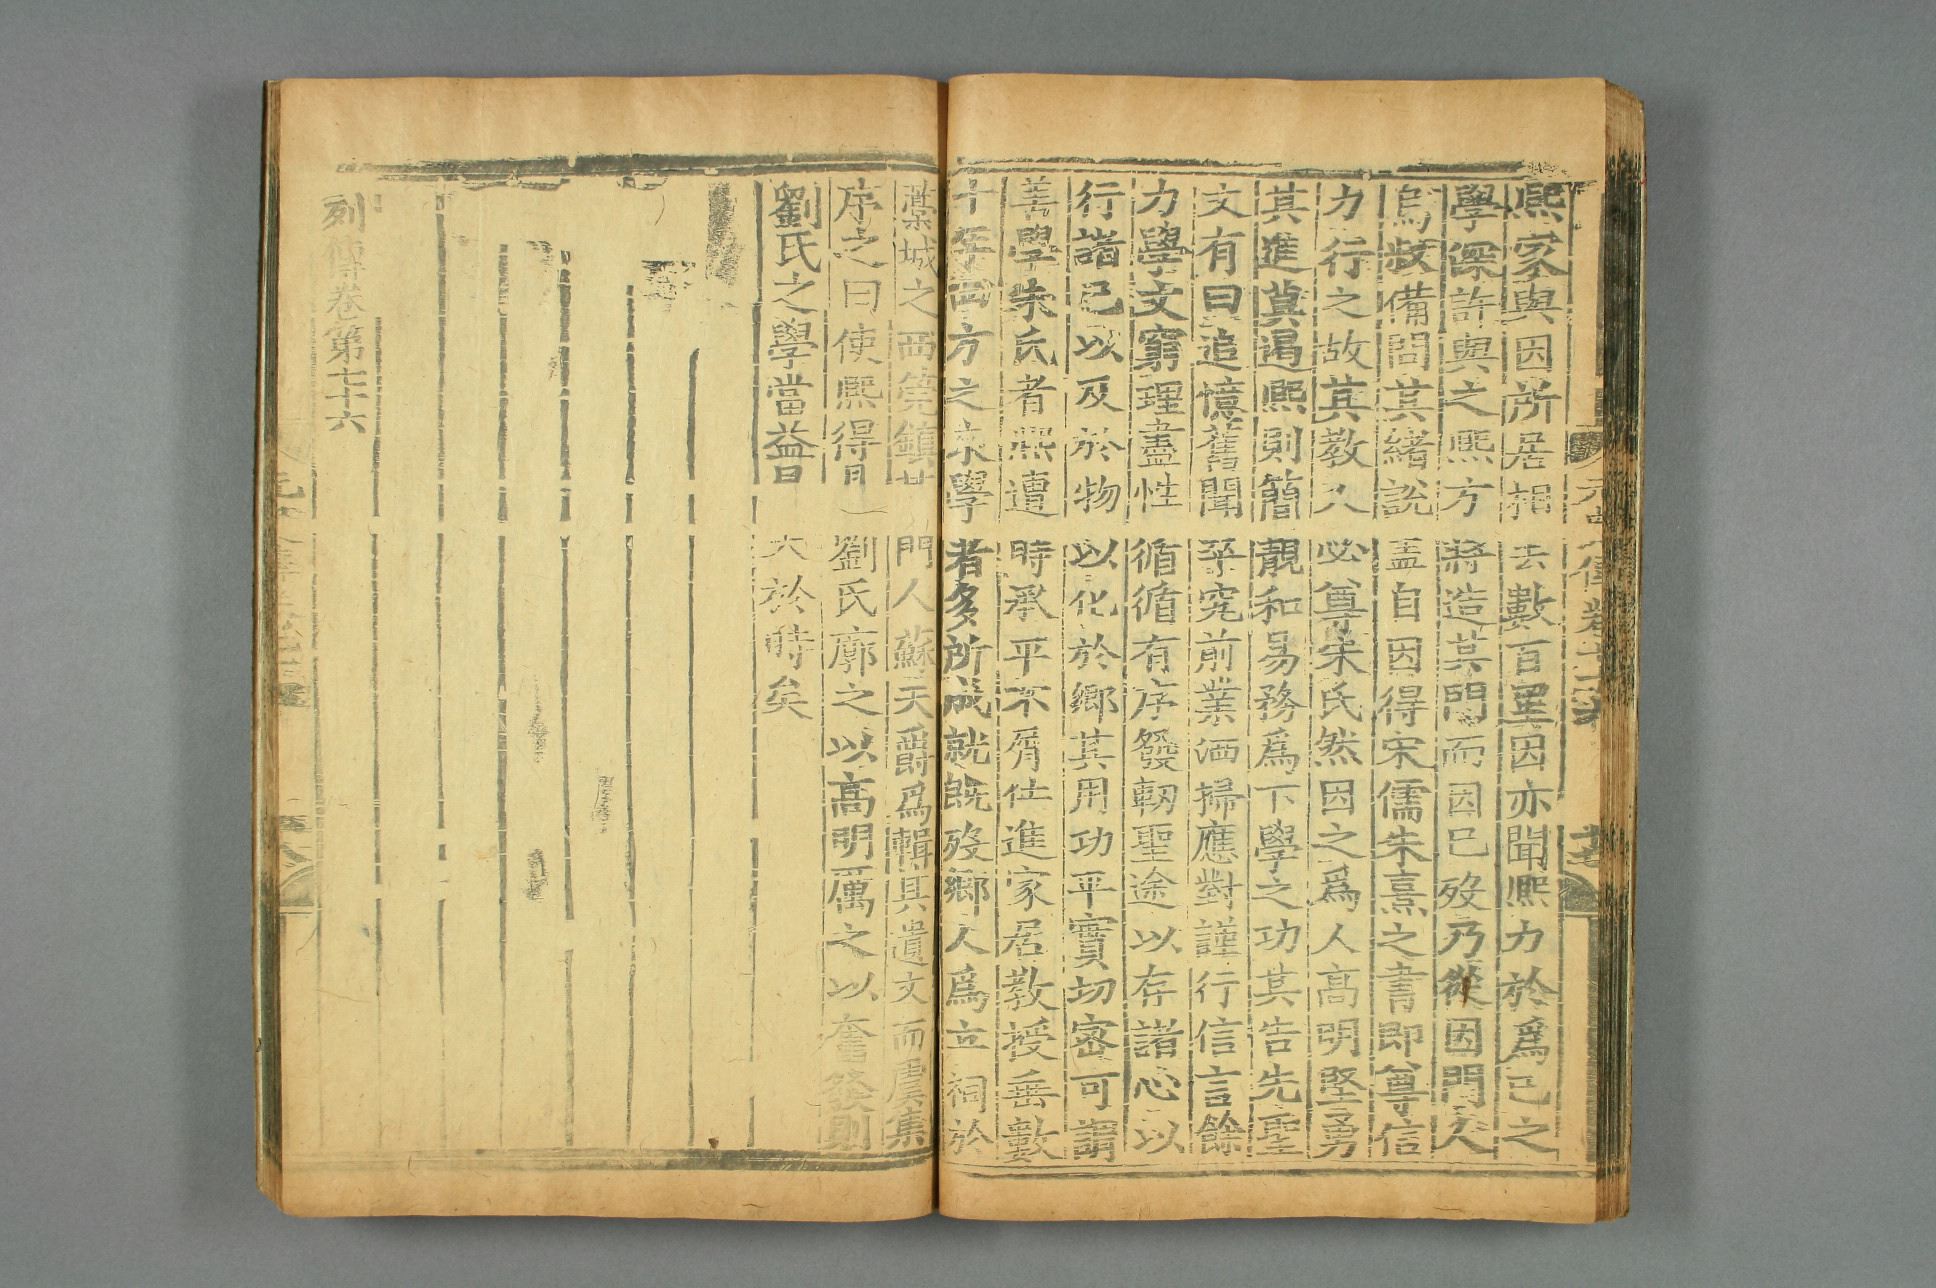 熙家與因所居相去數百里因亦聞熙力於爲己之
學深許與之熙方將造其門而因已歿乃從因門人
烏叔備問其緒說蓋自因得宋儒朱熹之書即尊信
力行之故其教人必尊朱氏然因之爲人高明堅勇
其進莫遏熙則簡靚和易務爲下學之功其告先聖
文有曰追憶舊聞卒究前業洒掃應對謹行信言餘
力學文窮理盡性循循有序發軔聖途以存諸心以
行諸己以及於物以化於鄉其用功平實切密可謂
善學朱氏者熙遭時承平不屑仕進家居教授垂數
十年四方之來學者多所成就既歿鄉人爲立祠於
藁城之西筦鎮其門人蘇天爵爲輯其遺文而虞集
序之曰使熙得見劉氏廓之以高明厲之以奮發則
劉氏之學當益昌大於時矣
列傳卷第七十六